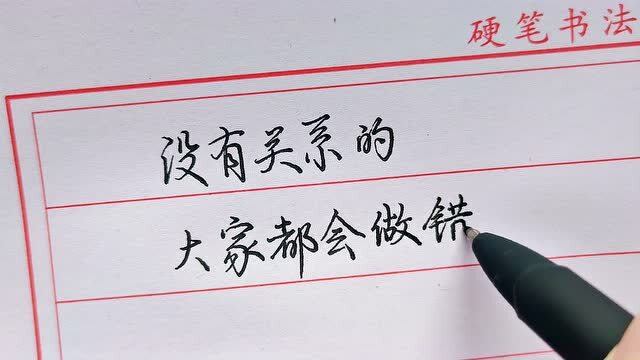 硬笔书法
没有关系的
大家都会做错